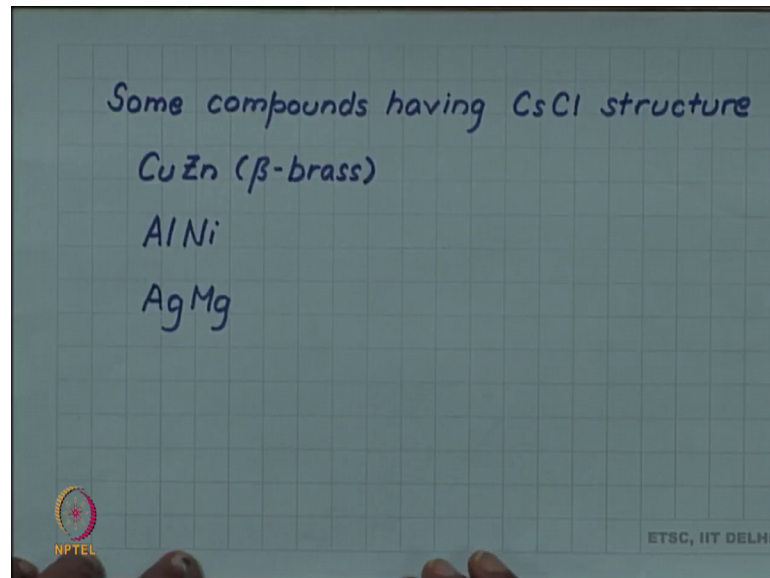 Some compounds having CsCl structure
CuZn (β-brass)
AlNi
AgMg
NPTEL
ETSC, IIT DELH